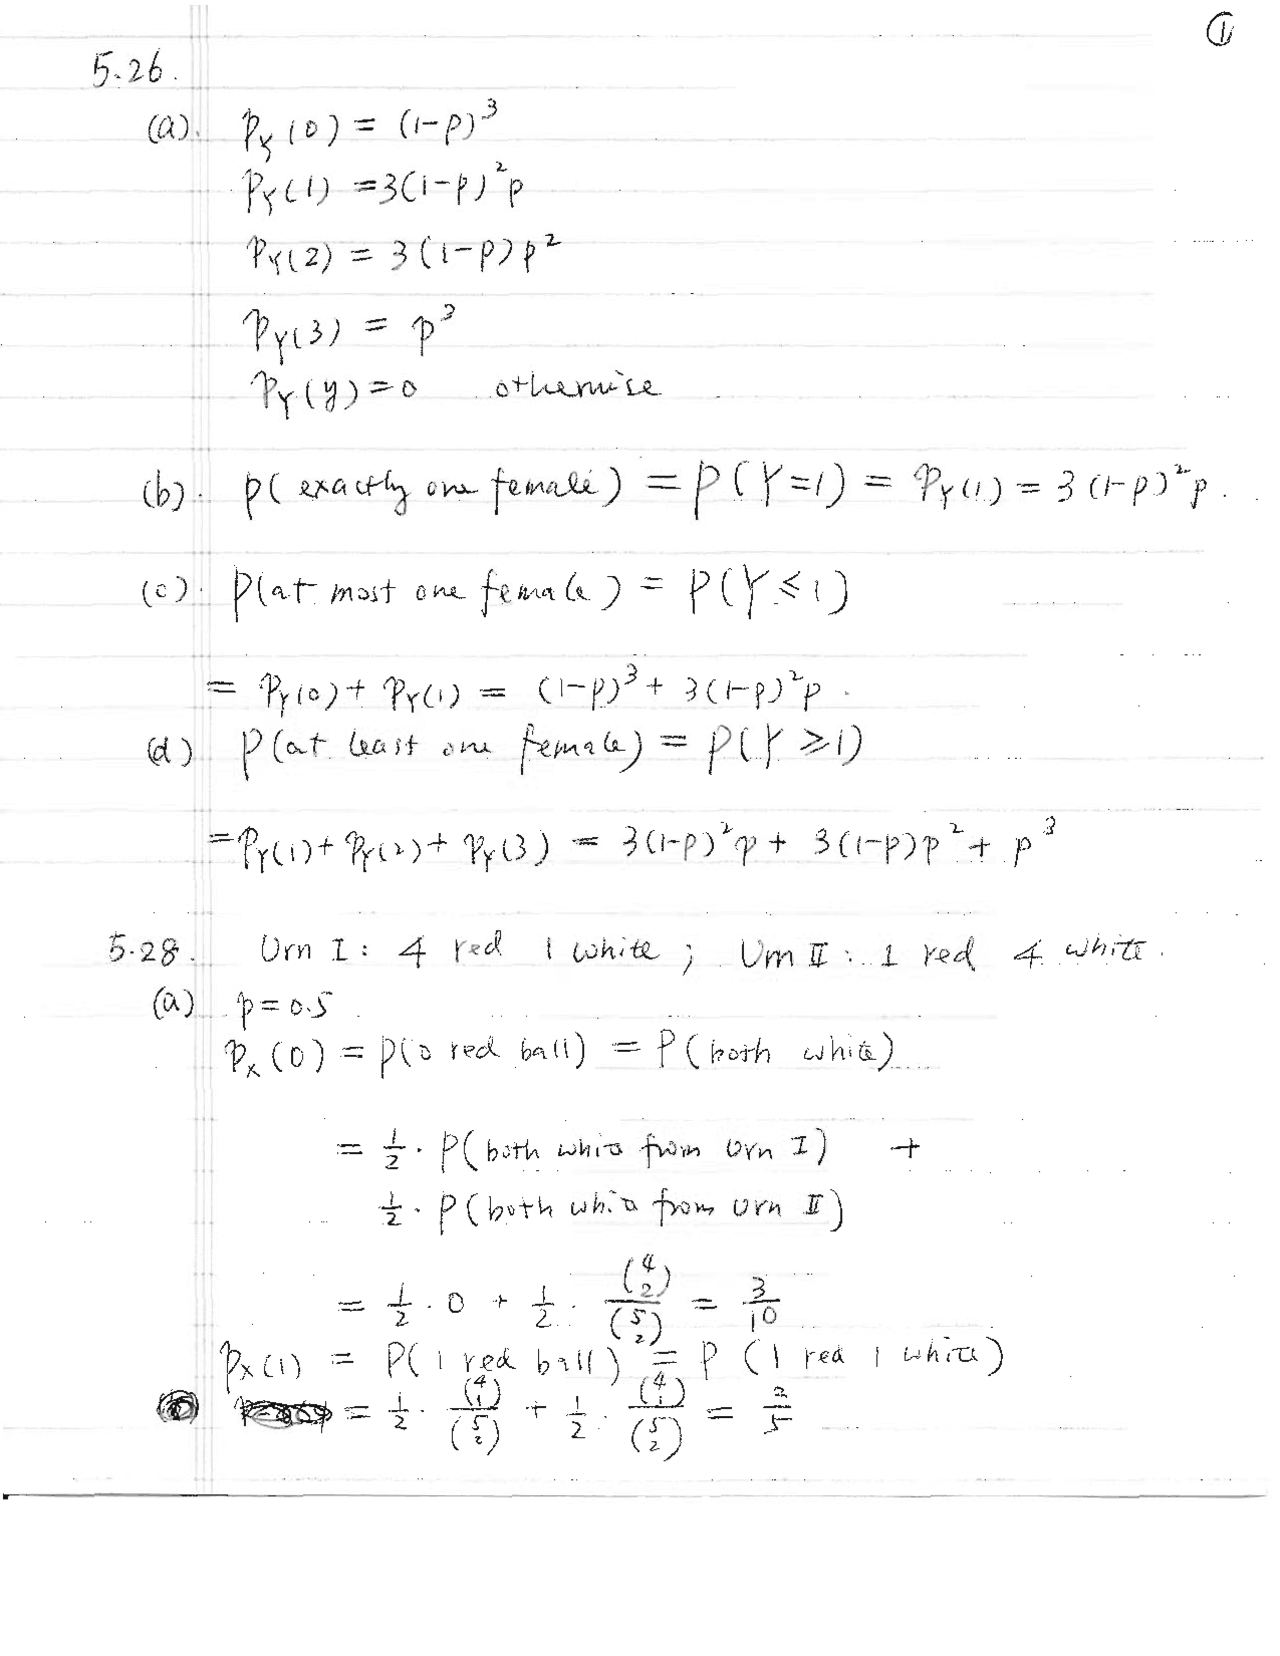 ①
5.26.
(a). P_Y(0) = (1-p)^3
P_Y(1) = 3(1-p)^2 p
P_Y(2) = 3(1-p)p^2
P_Y(3) = p^3
P_Y(y) = 0 otherwise
(b). P(exactly one female) = P(Y=1) = P_Y(1) = 3(1-p)^2 p.
(c). P(at most one female) = P(Y≤1)
= P_Y(0) + P_Y(1) = (1-p)^3 + 3(1-p)^2 p.
(d) P(at least one female) = P(Y≥1)
= P_Y(1) + P_Y(2) + P_Y(3) = 3(1-p)^2 p + 3(1-p)p^2 + p^3
5.28. Urn I: 4 red 1 white; Urn II: 1 red 4 white.
(a) p = 0.5
P_X(0) = P(0 red ball) = P(both white)
= 1/2 · P(both white from Urn I) +
1/2 · P(both white from Urn II)
= 1/2 · 0 + 1/2 · (4 2)/(5 2) = 3/10
P_X(1) = P(1 red ball) = P(1 red 1 white)
= 1/2 · (4 1)/(5 2) + 1/2 · (4 1)/(5 2) = 2/5